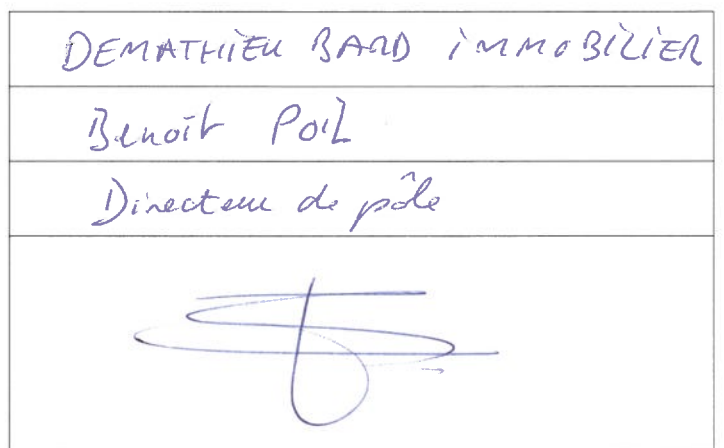 DEMATHIEU BARD iMMOBiLiER
Benoît Poil
Directeur de pôle